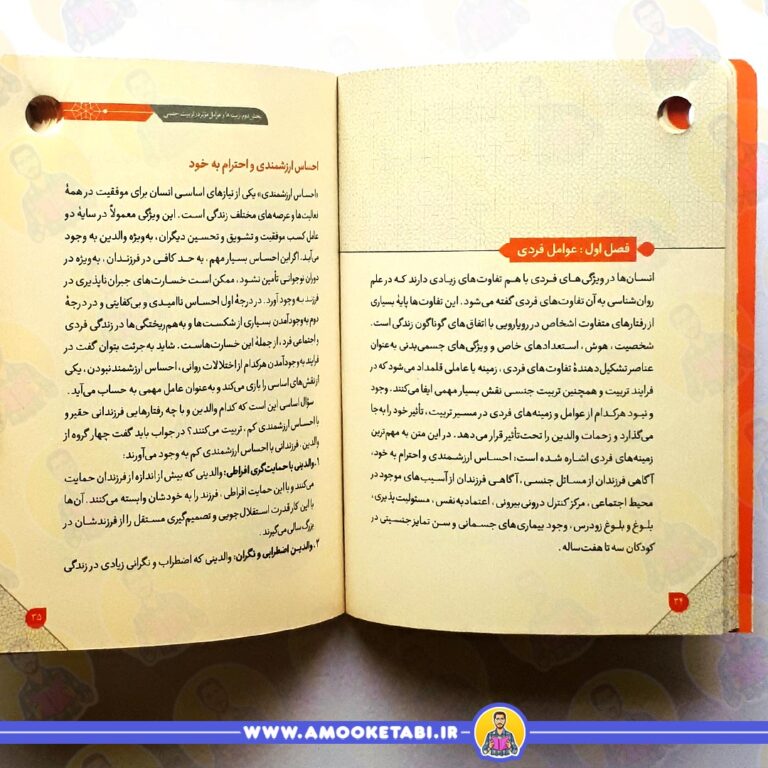 فصل اول : عوامل فردی
انسان‌ها در ویژگی‌های فردی با هم تفاوت‌های زیادی دارند که در علم
روان‌شناسی به آن تفاوت‌های فردی گفته می‌شود. این تفاوت‌ها پایهٔ بسیاری
از رفتارهای متفاوت اشخاص در رویارویی با اتفاق‌های گوناگون زندگی است.
شخصیت، هوش، استعدادهای خاص و ویژگی‌های جسمی‌بدنی به‌عنوان
عناصر تشکیل‌دهندهٔ تفاوت‌های فردی، زمینه یا عاملی قلمداد می‌شود که در
فرایند تربیت و همچنین تربیت جنسی نقش بسیار مهمی ایفا می‌کنند. وجود
و نبود هرکدام از عوامل و زمینه‌های فردی در مسیر تربیت، تأثیر خود را به‌جا
می‌گذارد و زحمات والدین را تحت‌تأثیر قرار می‌دهد. در این متن به مهم‌ترین
زمینه‌های فردی اشاره شده است: احساس ارزشمندی و احترام به خود،
آگاهی فرزندان از مسائل جنسی، آگاهی فرزندان از آسیب‌های موجود در
محیط اجتماعی، مرکز کنترل درونی‌بیرونی، اعتمادبه‌نفس، مسئولیت‌پذیری،
بلوغ و بلوغ زودرس، وجود بیماری‌های جسمانی و سن تمایز جنسیتی در
کودکان سه تا هفت‌ساله.
۳۴
بخش دوم: زمینه‌ها و عوامل مؤثر در تربیت جنسی
احساس ارزشمندی و احترام به خود
«احساس ارزشمندی» یکی از نیازهای اساسی انسان برای موفقیت در همهٔ
فعالیت‌ها و عرصه‌های مختلف زندگی است. این ویژگی معمولاً در سایهٔ دو
عامل کسب موفقیت و تشویق و تحسین دیگران، به‌ویژه والدین به وجود
می‌آید. اگر این احساس بسیار مهم، به حد کافی در فرزندان، به‌ویژه در
دوران نوجوانی تأمین نشود، ممکن است خسارت‌های جبران‌ناپذیری در
فرزند به وجود آورد. در درجهٔ اول احساس ناامیدی و بی‌کفایتی و در درجهٔ
دوم به‌وجودآمدن بسیاری از شکست‌ها و به‌هم‌ریختگی‌ها در زندگی فردی
و اجتماعی فرد، از جملهٔ این خسارت‌هاست. شاید به‌جرئت بتوان گفت در
فرایند به‌وجودآمدن هرکدام از اختلالات روانی، احساس ارزشمندنبودن، یکی
از نقش‌های اساسی را بازی می‌کند و به‌عنوان عامل مهمی به حساب می‌آید.
سؤال اساسی این است که کدام والدین و با چه رفتارهایی فرزندانی حقیر و
با احساس ارزشمندی کم، تربیت می‌کنند؟ در جواب باید گفت چهار گروه از
والدین، فرزندانی با احساس ارزشمندی کم به وجود می‌آورند:
۱. والدینی با حمایت‌گری افراطی: والدینی که بیش از اندازه از فرزندان حمایت
می‌کنند و با این حمایت افراطی، فرزند را به خودشان وابسته می‌کنند. آن‌ها
با این کار قدرت استقلال‌جویی و تصمیم‌گیری مستقل را از فرزندشان در
بزرگ‌سالی می‌گیرند.
۲. والدین اضطرابی و نگران: والدینی که اضطراب و نگرانی زیادی در زندگی
۳۵
WWW.AMOOKETABI.IR